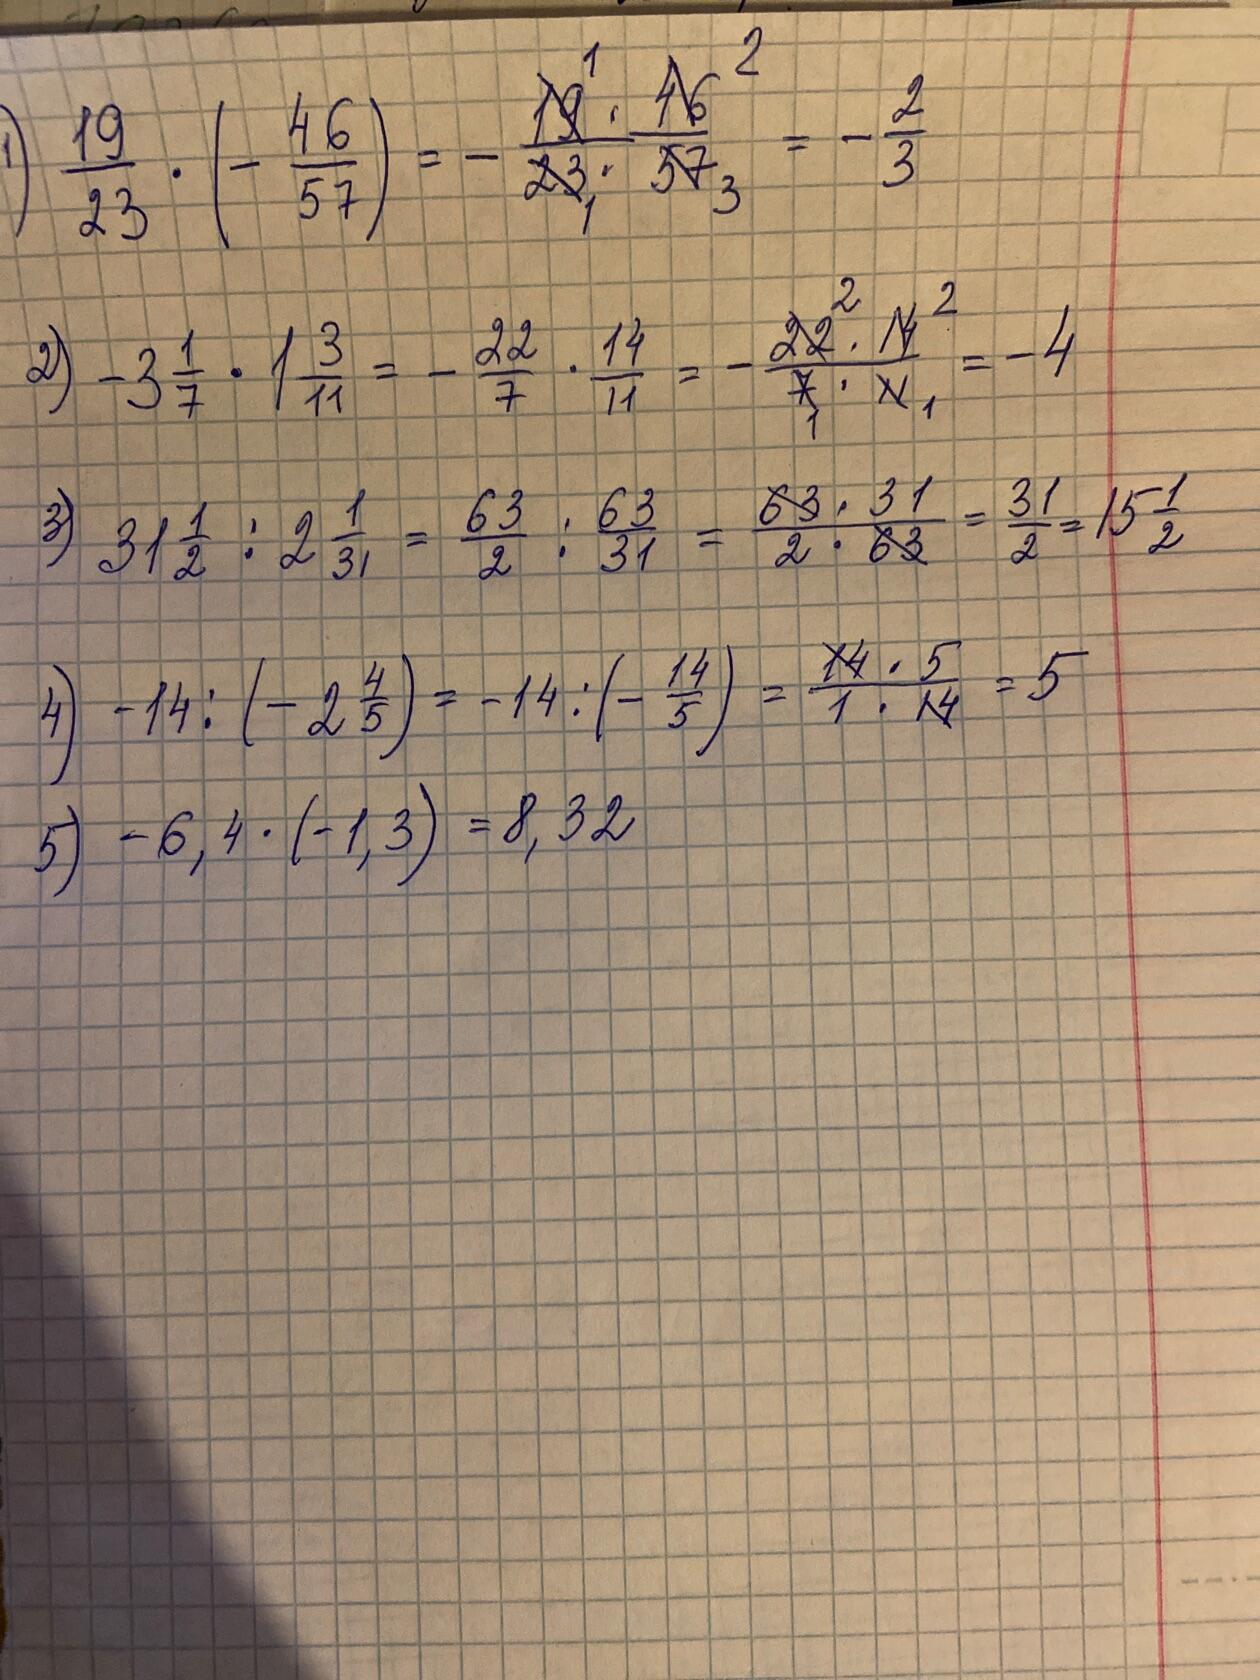 1) 19/23 · (- 46/57) = - 19¹ · 46²/23₁ · 57₃ = - 2/3
2) -3 1/7 · 1 3/11 = - 22/7 · 14/11 = - 22² · 14²/7₁ · 11₁ = -4
3) 31 1/2 : 2 1/31 = 63/2 : 63/31 = 63 · 31/2 · 63 = 31/2 = 15 1/2
4) -14 : (- 2 4/5) = -14 : (- 14/5) = 14 · 5/1 · 14 = 5
5) -6,4 · (-1,3) = 8,32